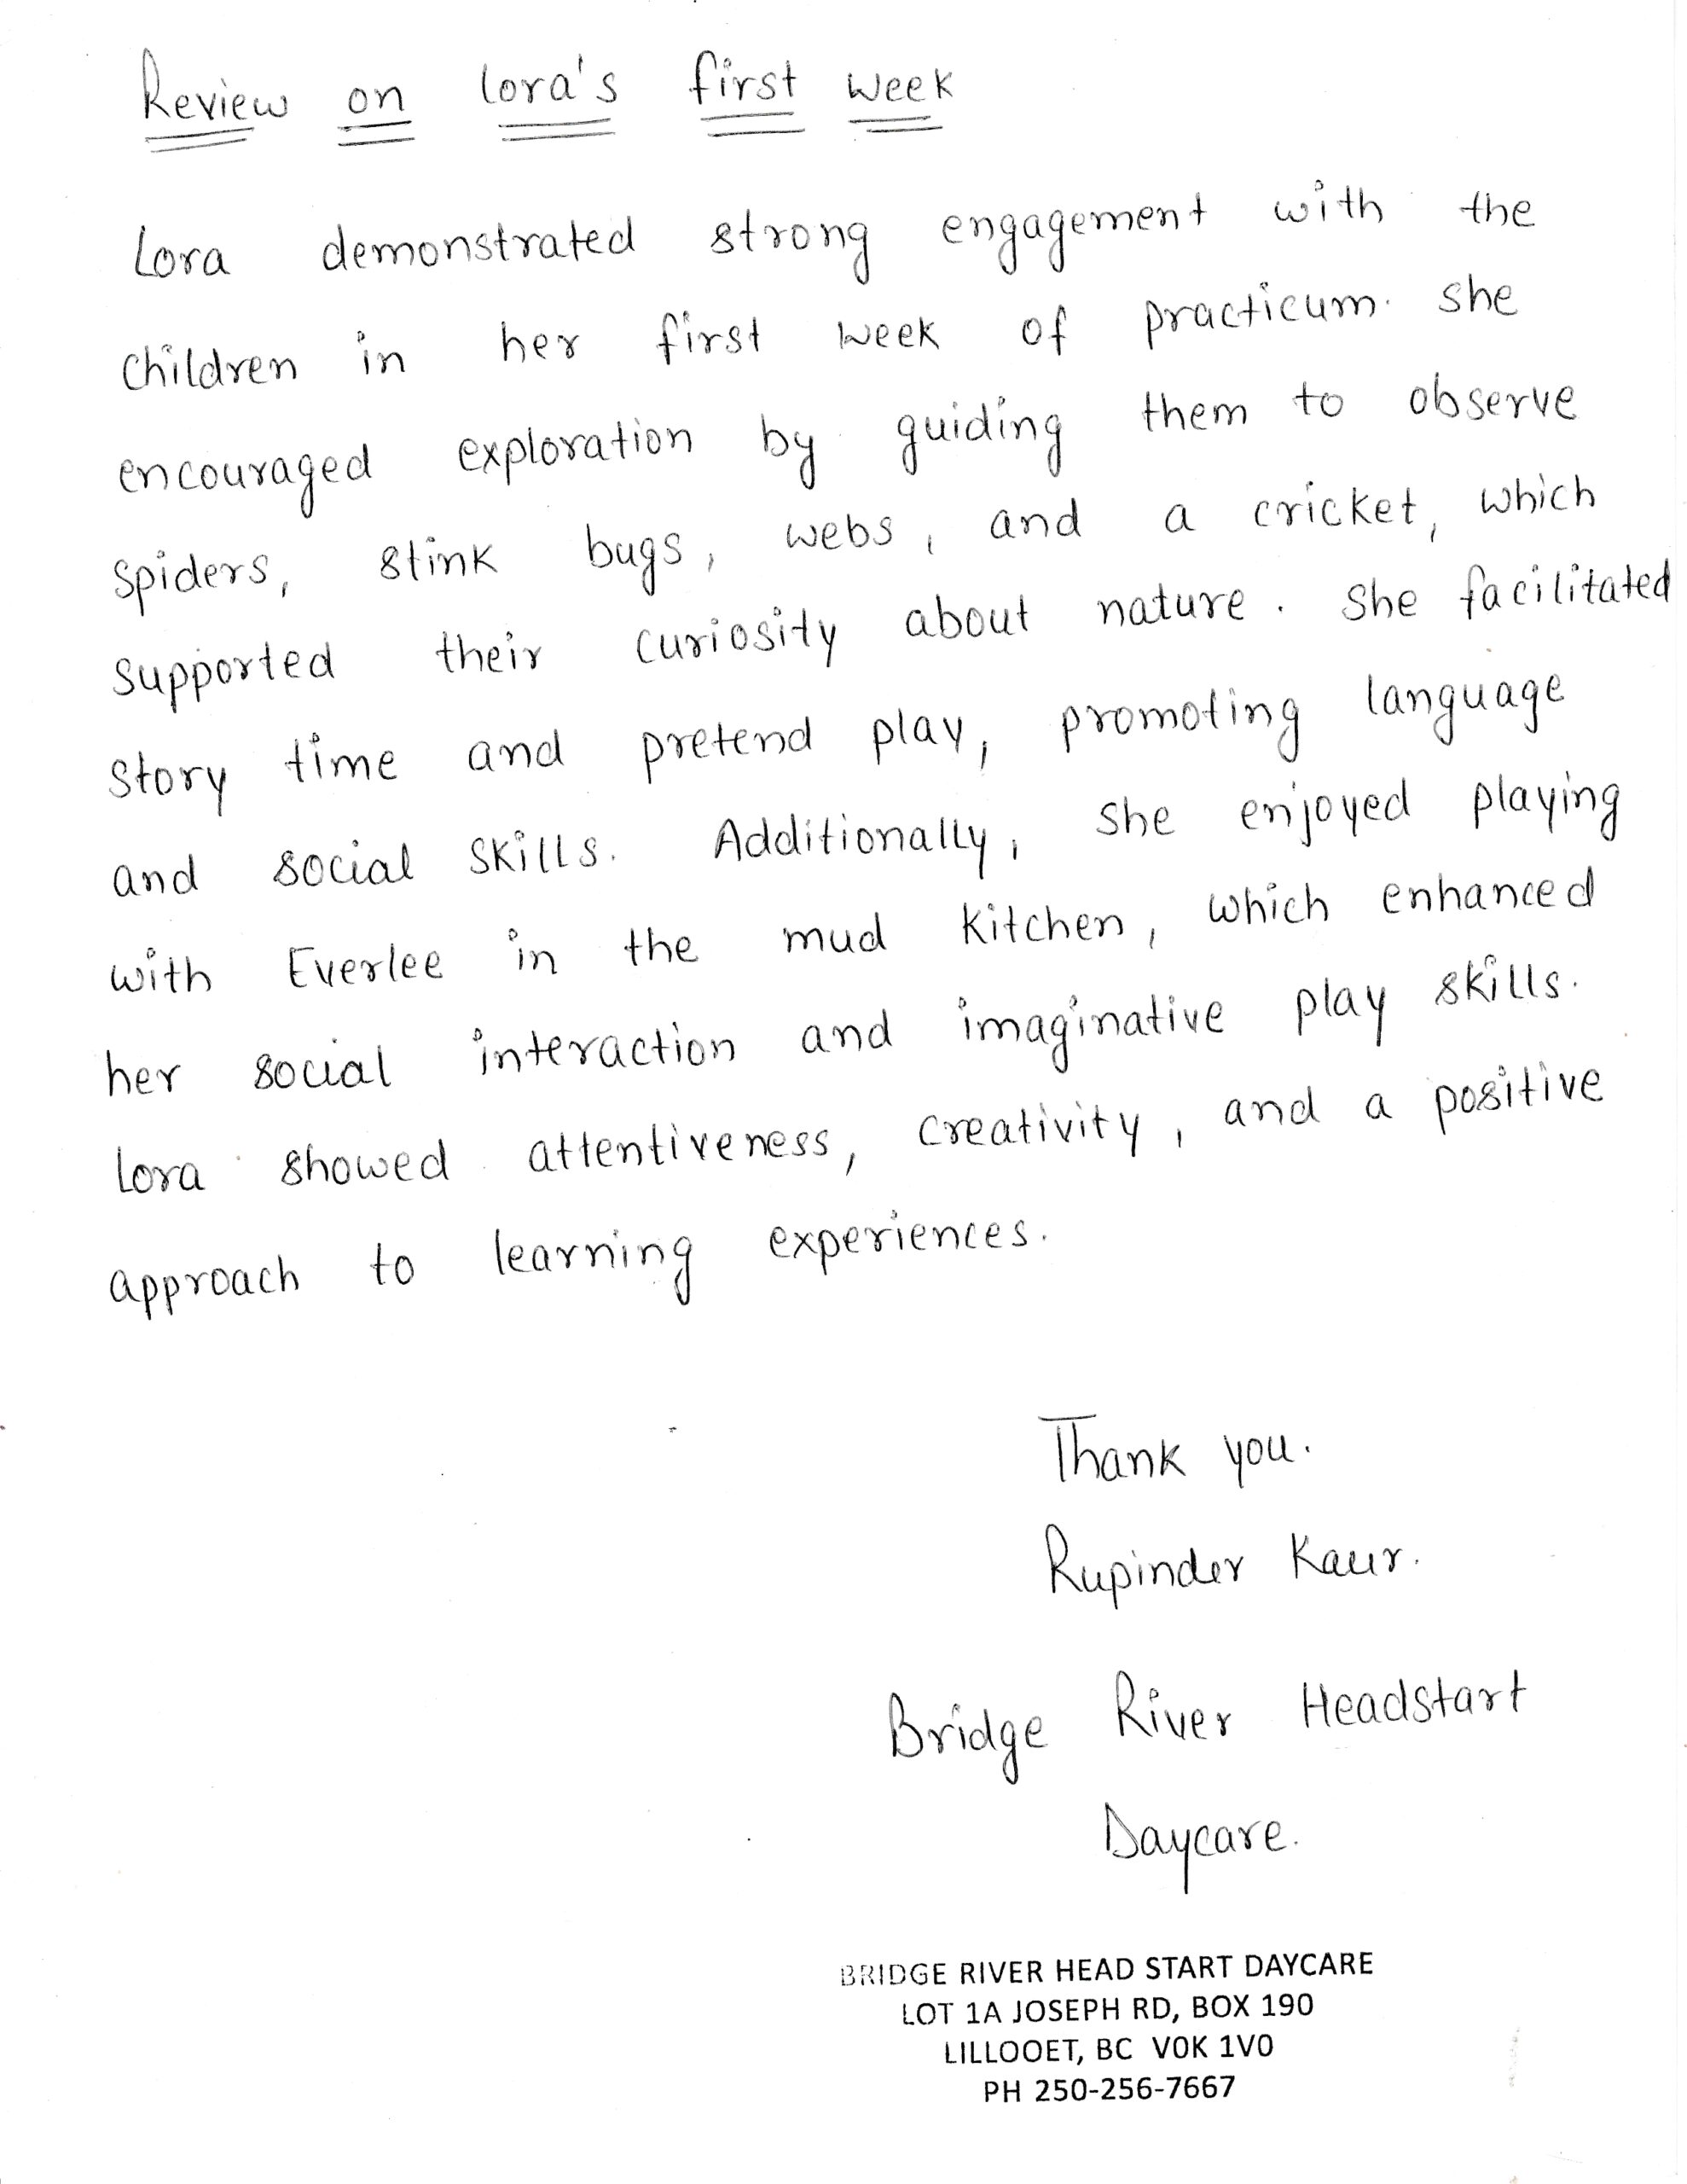 Review on Lora's first week
Lora demonstrated strong engagement with the
children in her first week of practicum. She
encouraged exploration by guiding them to observe
spiders, stink bugs, webs, and a cricket, which
supported their curiosity about nature. She facilitated
story time and pretend play, promoting language
and social skills. Additionally, she enjoyed playing
with Everlee in the mud kitchen, which enhanced
her social interaction and imaginative play skills.
Lora showed attentiveness, creativity, and a positive
approach to learning experiences.
Thank you.
Rupinder Kaur.
Bridge River Headstart
Daycare.
BRIDGE RIVER HEAD START DAYCARE
LOT 1A JOSEPH RD, BOX 190
LILLOOET, BC V0K 1V0
PH 250-256-7667